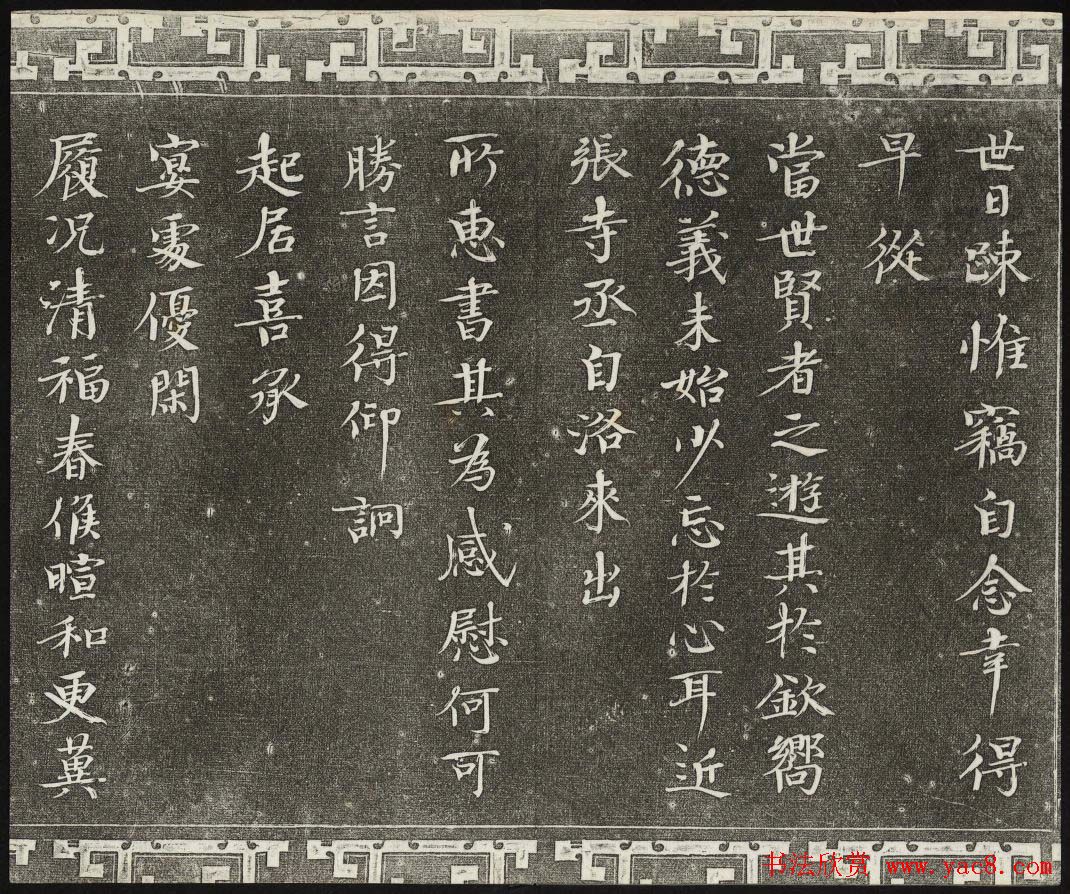 世日踈惟竊自念幸得
早從
當世賢者之遊其於欽嚮
德義未始少忘於心耳近
張寺丞自洛來出
所惠書其為感慰何可
勝言因得仰詗
起居喜承
宴處優閑
履況清福春候暄和更冀
书法欣赏 www.yac8.com